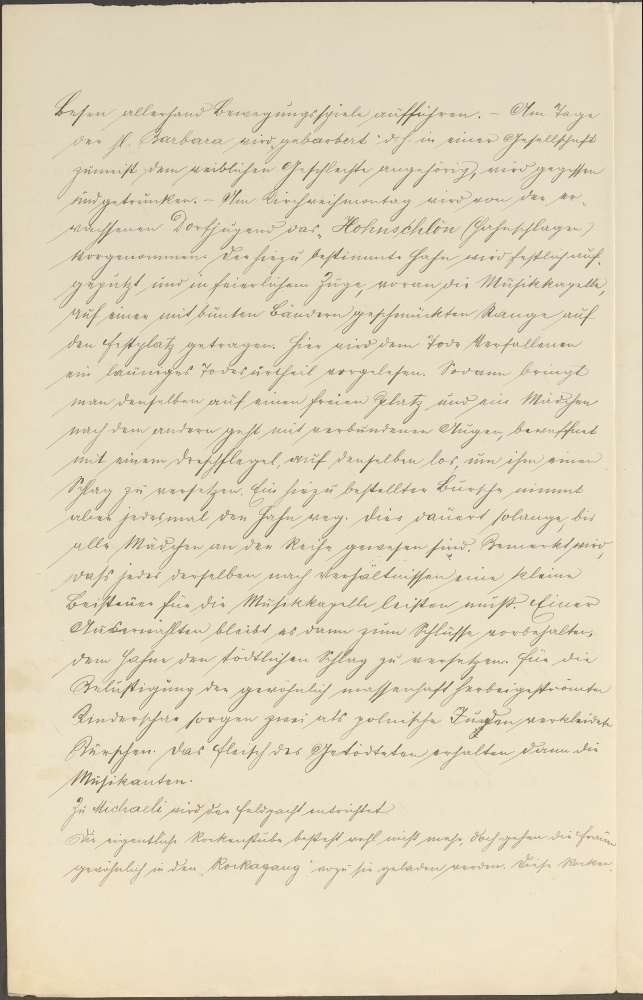 Besen allerhand Bewegungsspiele aufführen. – Am Tage
der hl. Barbara wird „gebarbert" d. h. in einer Gesellschaft
zumeist dem weiblichen Geschlechte angehörig, wird gegessen
und getrunken. – Am Kirchweihmontag wird von der er-
wachsenen Dorfjugend das „Hohnschlôn" (Hahnschlagen)
vorgenommen. Der hiezu bestimmte Hahn wird festlich auf-
geputzt und in feierlichem Zuge, voran die Musikkapelle,
auf einer mit bunten Bändern geschmückten Stange auf
den Festplatz getragen. Hier wird dem Tode Verfallenen
ein launiges Todesurtheil vorgelesen. Sodann bringt
man denselben auf einen freien Platz und ein Mädchen
nach dem andern geht mit verbundenen Augen, bewaffnet
mit einem Dreschflegel, auf denselben los, um ihm einen
Schlag zu versetzen. Ein hiezu bestellter Bursche nimmt
aber jedesmal den Hahn weg. Dies dauert solange, bis
alle Mädchen an der Reihe gewesen sind. Bemerkt wird,
dass jedes derselben nach Verhältnissen eine kleine
Beisteuer für die Musikkapelle leisten muß. Einer
Auserwählten bleibt es dann zum Schlusse vorbehalten,
dem Hahne den tödtlichen Schlag zu versetzen. Für die
Belustigung der gewöhnlich massenhaft herbeigeströmten
Kinderschar sorgen zwei als polnische Juden verkleidete
Burschen. Das Fleisch des Getödteten erhalten dann die
Musikanten.
Zu Michaeli wird der Feldpacht entrichtet
Die eigentliche Rockenstube besteht wohl nicht mehr, doch gehen die Frauen
gewöhnlich in den „Rockagang" wozu sie geladen werden. Diese Rocken-